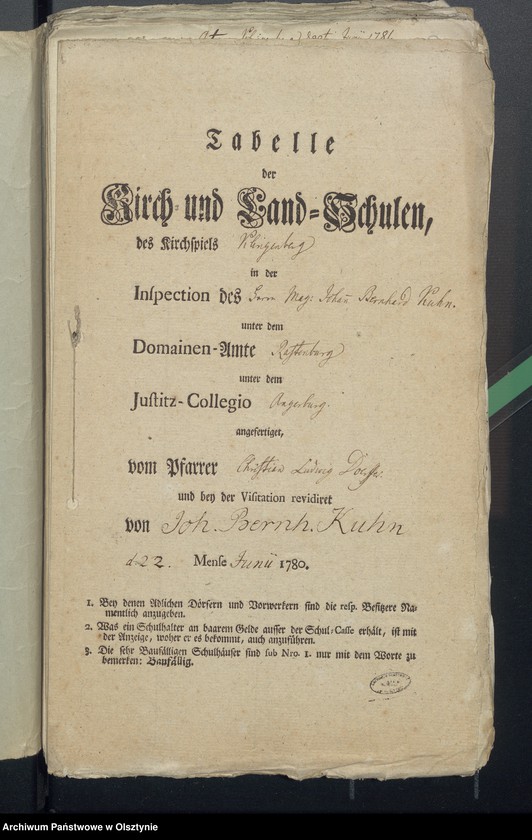 1781
Tabelle
der
Kirch- und Land-Schulen,
des Kirchspiels Klingenberg
in der
Inspection des Herrn Mag: Johan Bernhard Kuhn.
unter dem
Domainen-Amte Rastenburg
unter dem
Justitz-Collegio Angerburg.
angefertiget,
vom Pfarrer Christian Ludwig
und bey der Visitation revidiret
von Joh. Bernh. Kuhn
d 22. Mense Junii 1780.
1. Bey denen Adlichen Dörfern und Vorwerkern sind die resp. Besitzere Na-
mentlich anzugeben.
2. Was ein Schulhalter an baarem Gelde ausser der Schul-Casse erhält, ist mit
der Anzeige, woher er es bekommt, auch anzuführen.
3. Die sehr Baufälligen Schulhäuser sind sub Nro. 1. nur mit dem Worte zu
bemerken: Baufällig.
Archiwum Państwowe w Olsztynie